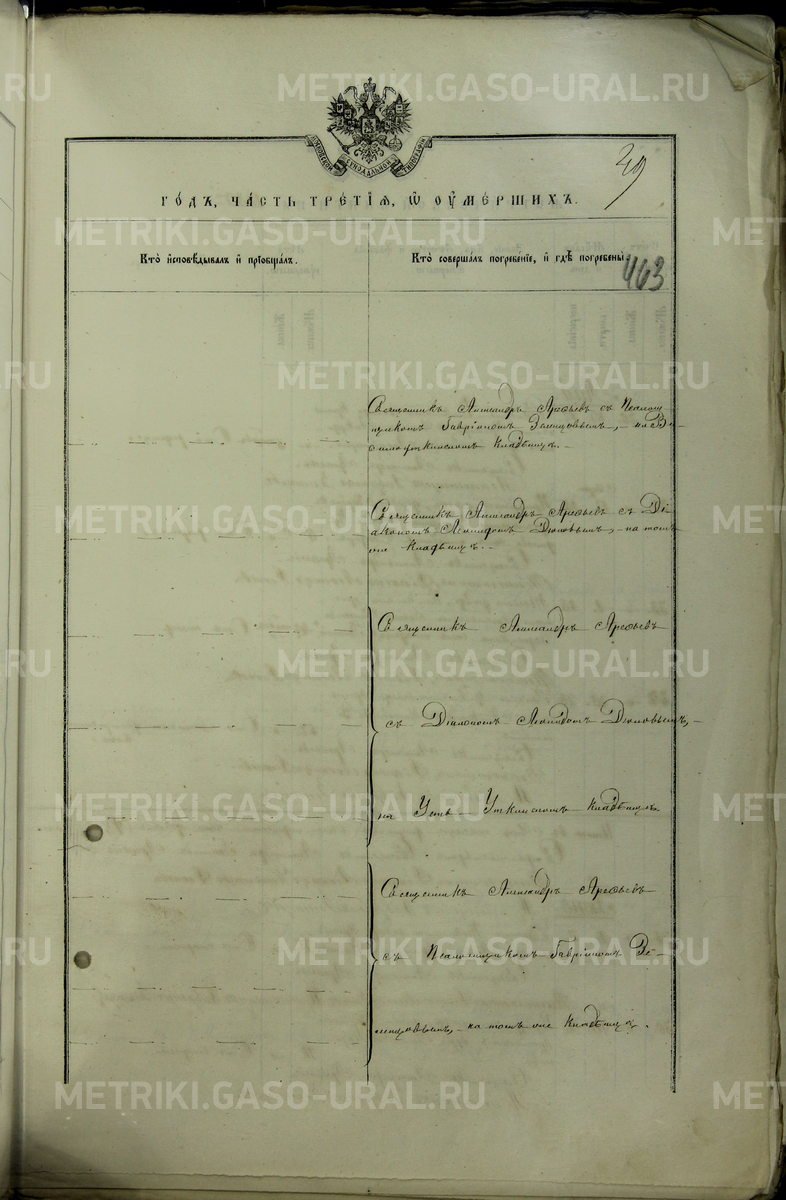 39
ГОДЪ, ЧАСТЬ ТРЕТІѦ, Ѡ ОУМЕРШИХЪ.
Кто исповѣдывалъ и прїобщалъ.
Кто совершалъ погребенїе, и гдѣ погребены.
463
Священникъ Александръ Арефьевъ съ Псалом-
щикомъ Гавріиломъ
кладбищѣ.
Священникъ Александръ Арефьевъ съ Ді-
акономъ Леонидомъ Дюковымъ, на томъ
же кладбищѣ.
Священникъ Александръ Арефьевъ
съ Діакономъ Леонидомъ Дюковымъ,
на Усть-Уткинскомъ кладбищѣ
Священникъ Александръ Арефьевъ
съ Псаломщикомъ Гавріиломъ
на томъ же кладбищѣ.
METRIKI.GASO-URAL.RU